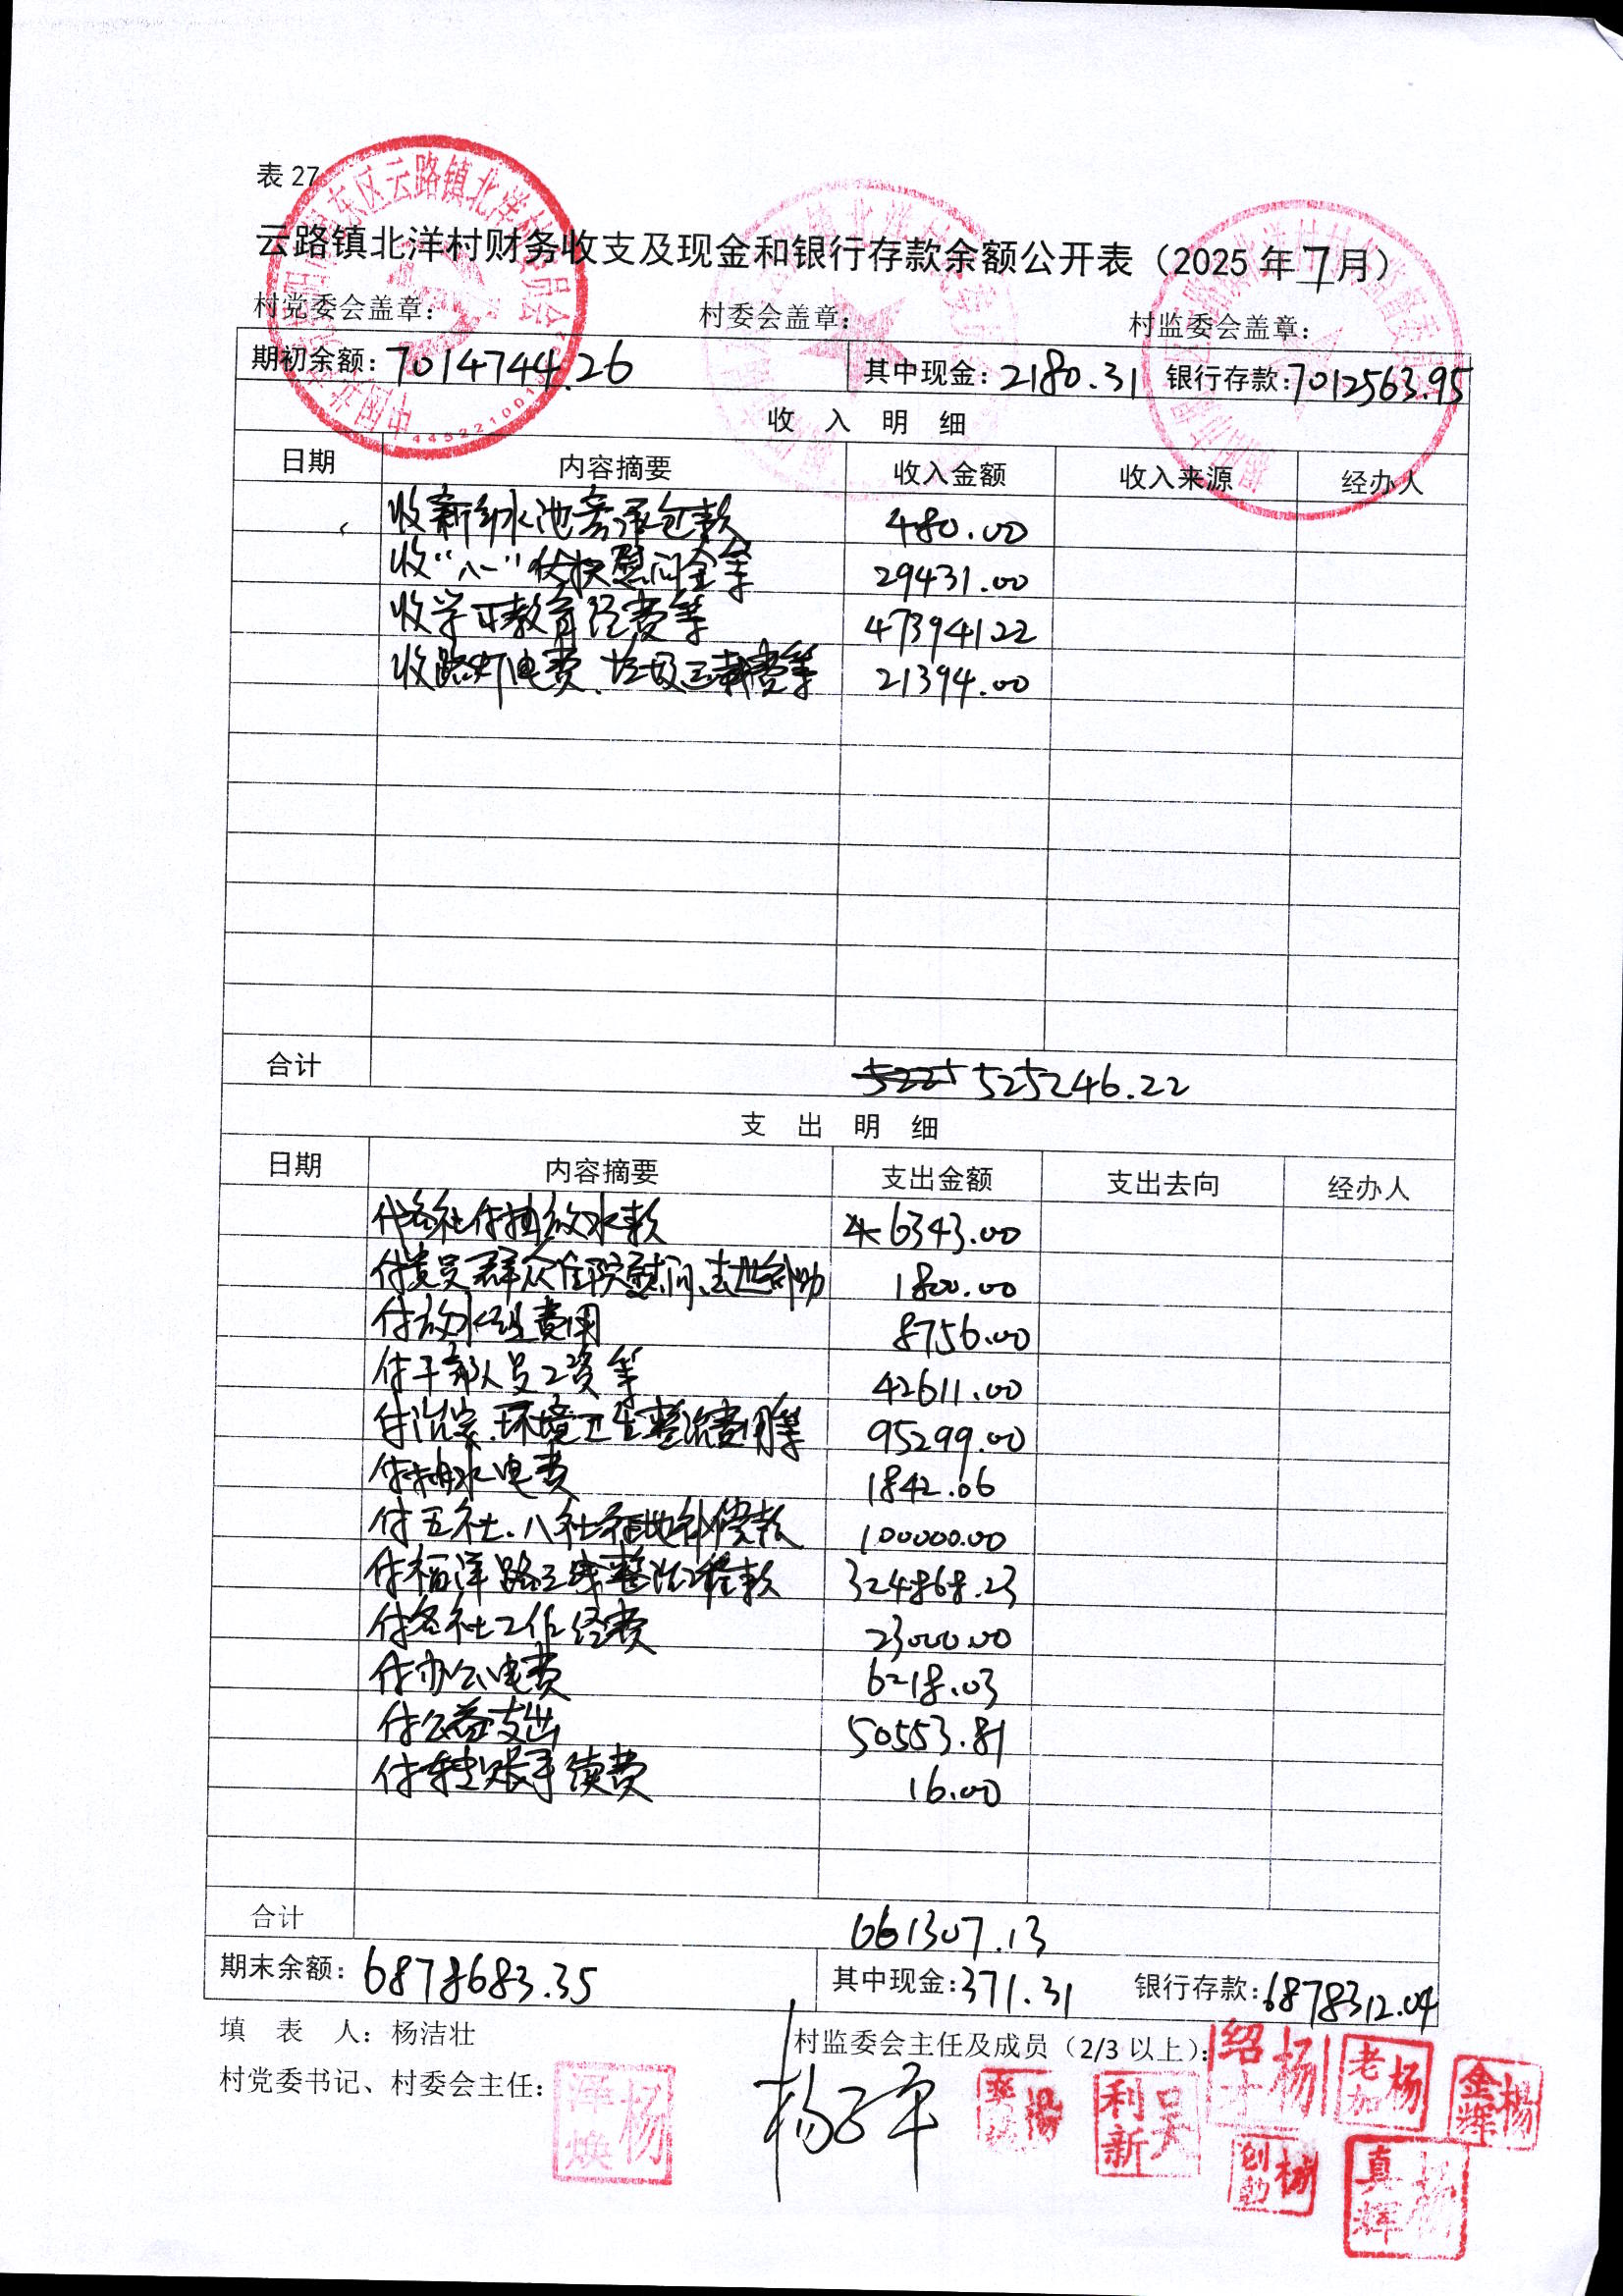 表 27
云路镇北洋村财务收支及现金和银行存款余额公开表（2025 年 7 月）
村党委会盖章： 村委会盖章： 村监委会盖章：
期初余额：7014744.26 其中现金：2180.31 银行存款：7012563.95
收 入 明 细
日期 内容摘要 收入金额 收入来源 经办人
收新乡水池旁承包款 480.00
收“八一”优抚慰问金等 29431.00
收学校教育经费等 473941.22
收路灯电费、垃圾运载费等 21394.00
合计 525246.22
支 出 明 细
日期 内容摘要 支出金额 支出去向 经办人
代各社付抽放水款 6343.00
付党员群众住院慰问、去世补助 1800.00
付放水组费用 8756.00
付干部人员工资等 42611.00
付治安、环境卫生整治费用等 95299.00
付抽水电费 1842.06
付五社、八社征地补偿款 100000.00
付福洋路三线整治工程款 324868.23
付各社工作经费 23000.00
付办公电费 6218.03
付公益支出 50553.81
付转账手续费 16.00
合计 661307.13
期末余额：6878683.35 其中现金：371.31 银行存款：6878312.04
填 表 人：杨洁壮 村监委会主任及成员（2/3 以上）：
村党委书记、村委会主任：
杨泽焕
吴利新
杨绍才
杨老加
杨金辉
杨创勃
杨真辉